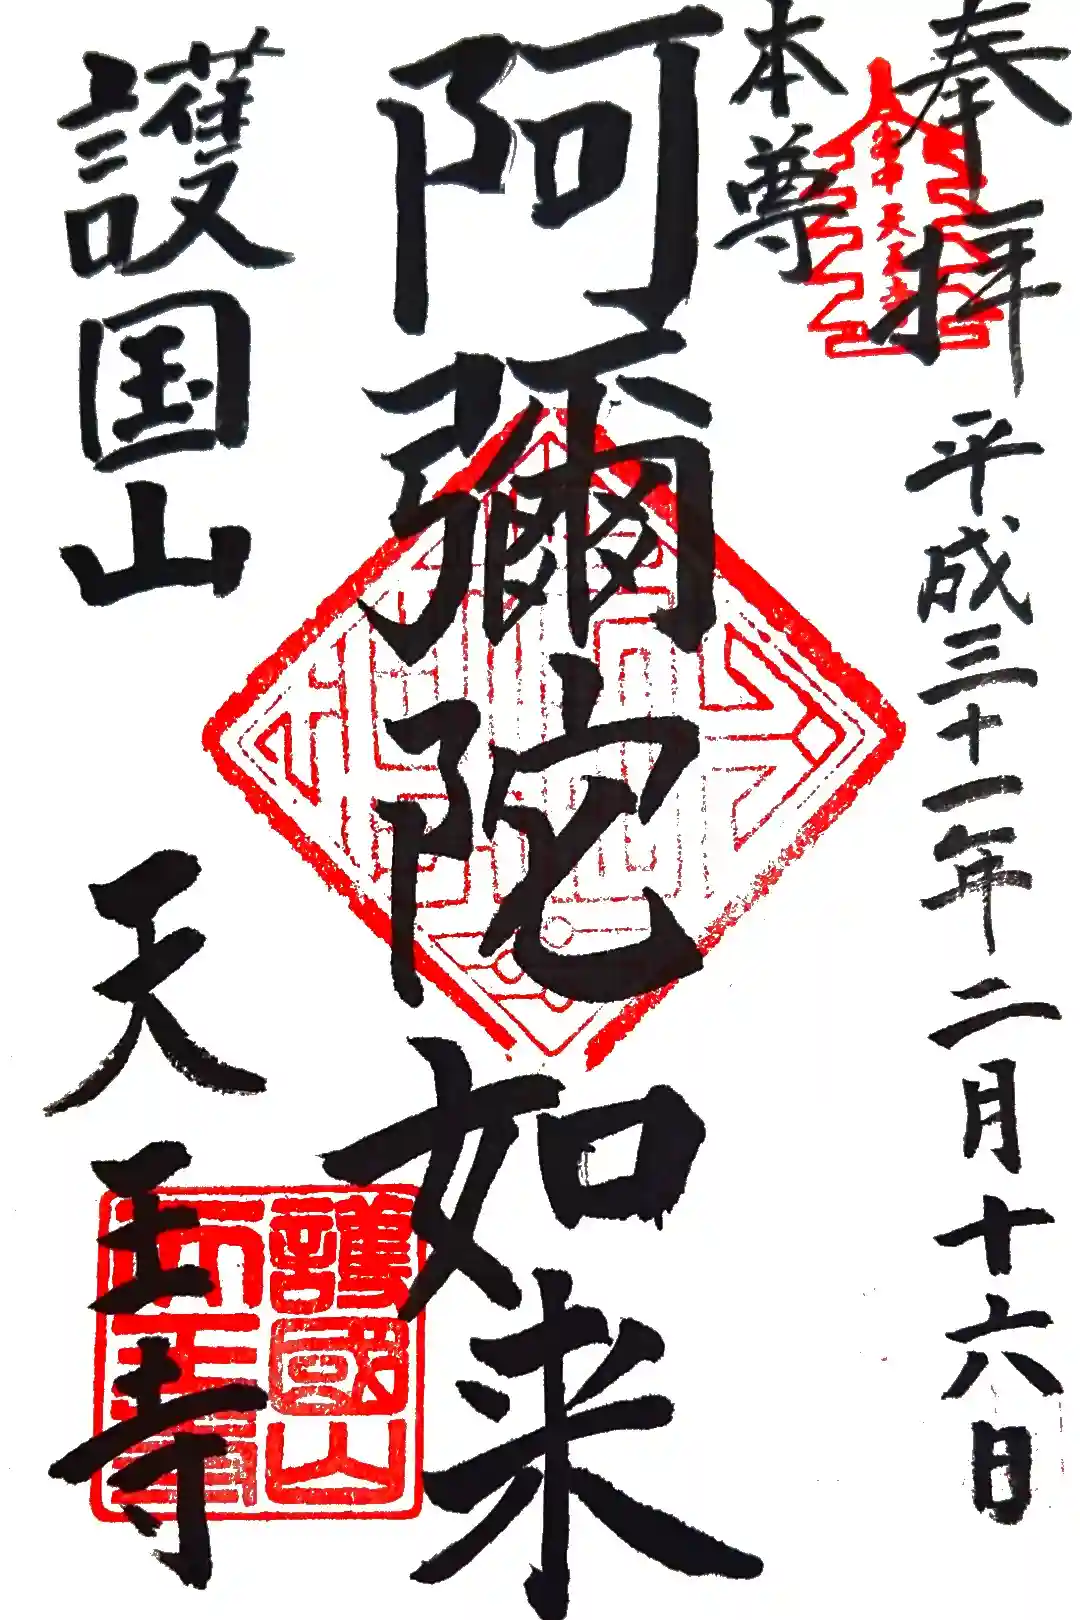 奉拝
平成三十一年二月十六日
本尊
阿彌陀如来
護国山
天王寺
護國山
天王寺